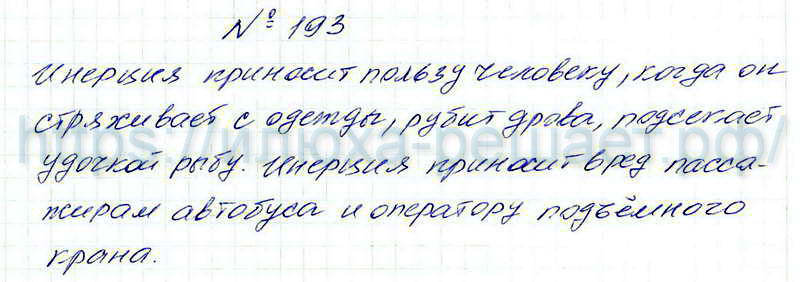 № 193
Инерция приносит пользу человеку, когда он
стряхивает с одежды, рубит дрова, подсекает
https://илюха-решает.рф/
удочкой рыбу. Инерция приносит вред пасса-
жирам автобуса и оператору подъёмного
крана.